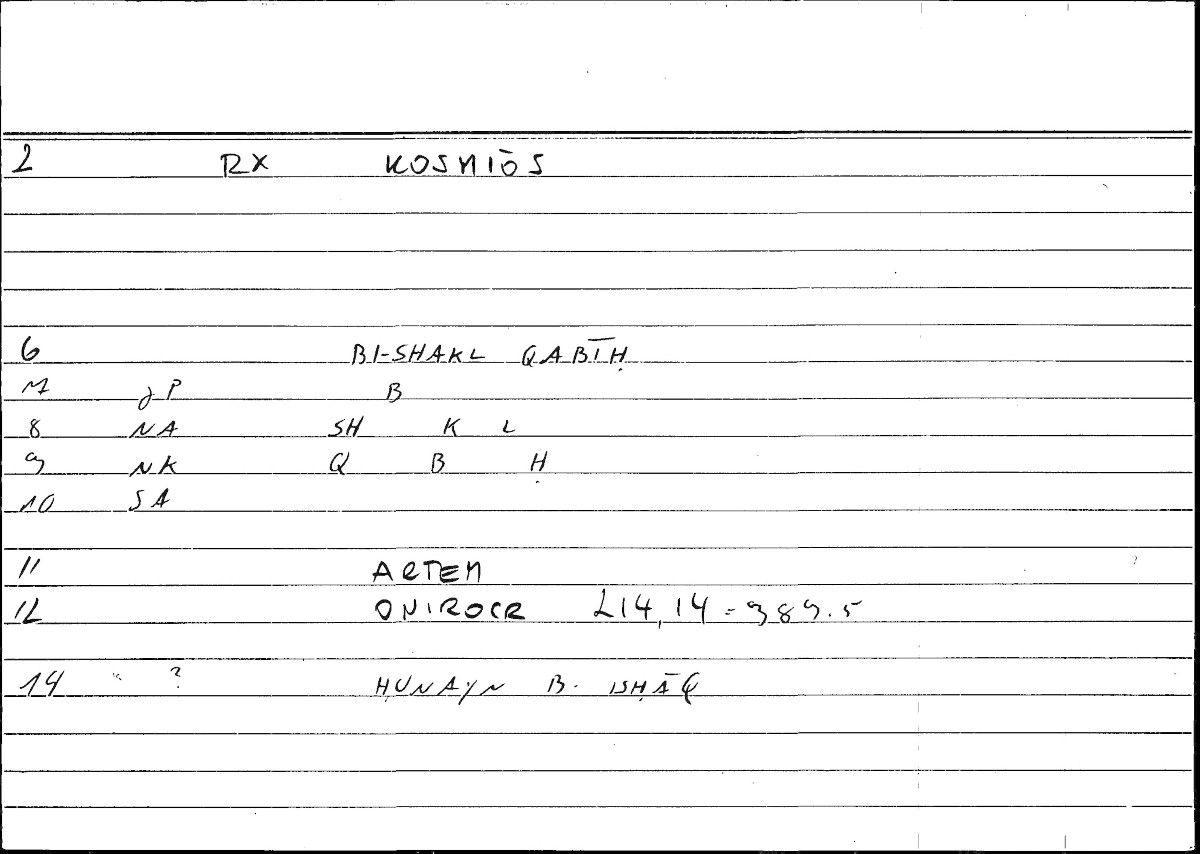 2 RX KOSMIŌS
6 BI-SHAKL QABĪḤ
7 JP B
8 NA SH K L
9 NK Q B Ḥ
10 SA
11 ARTEM
12 ONIROCR 214,14 = 389.5
14 " ? ḤUNAYN B. ISḤĀQ